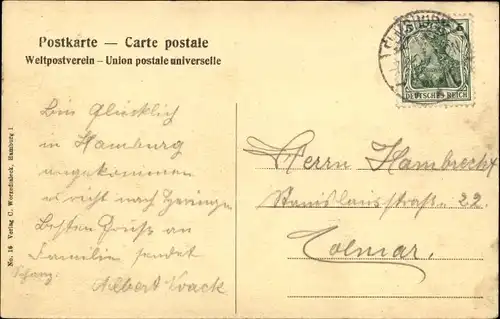 Postkarte — Carte postale
Weltpostverein – Union postale universelle
5
DEUTSCHES REICH
Bin Glücklich
in Hamburg
angekommen
es riecht nach Heringe
Besten Gruß an
Familie sendet
Albert
Herrn Hambrecht
Stanislausstraße 22.
Colmar.
No. 16 Verlag C. Worzedialeck, Hamburg 1